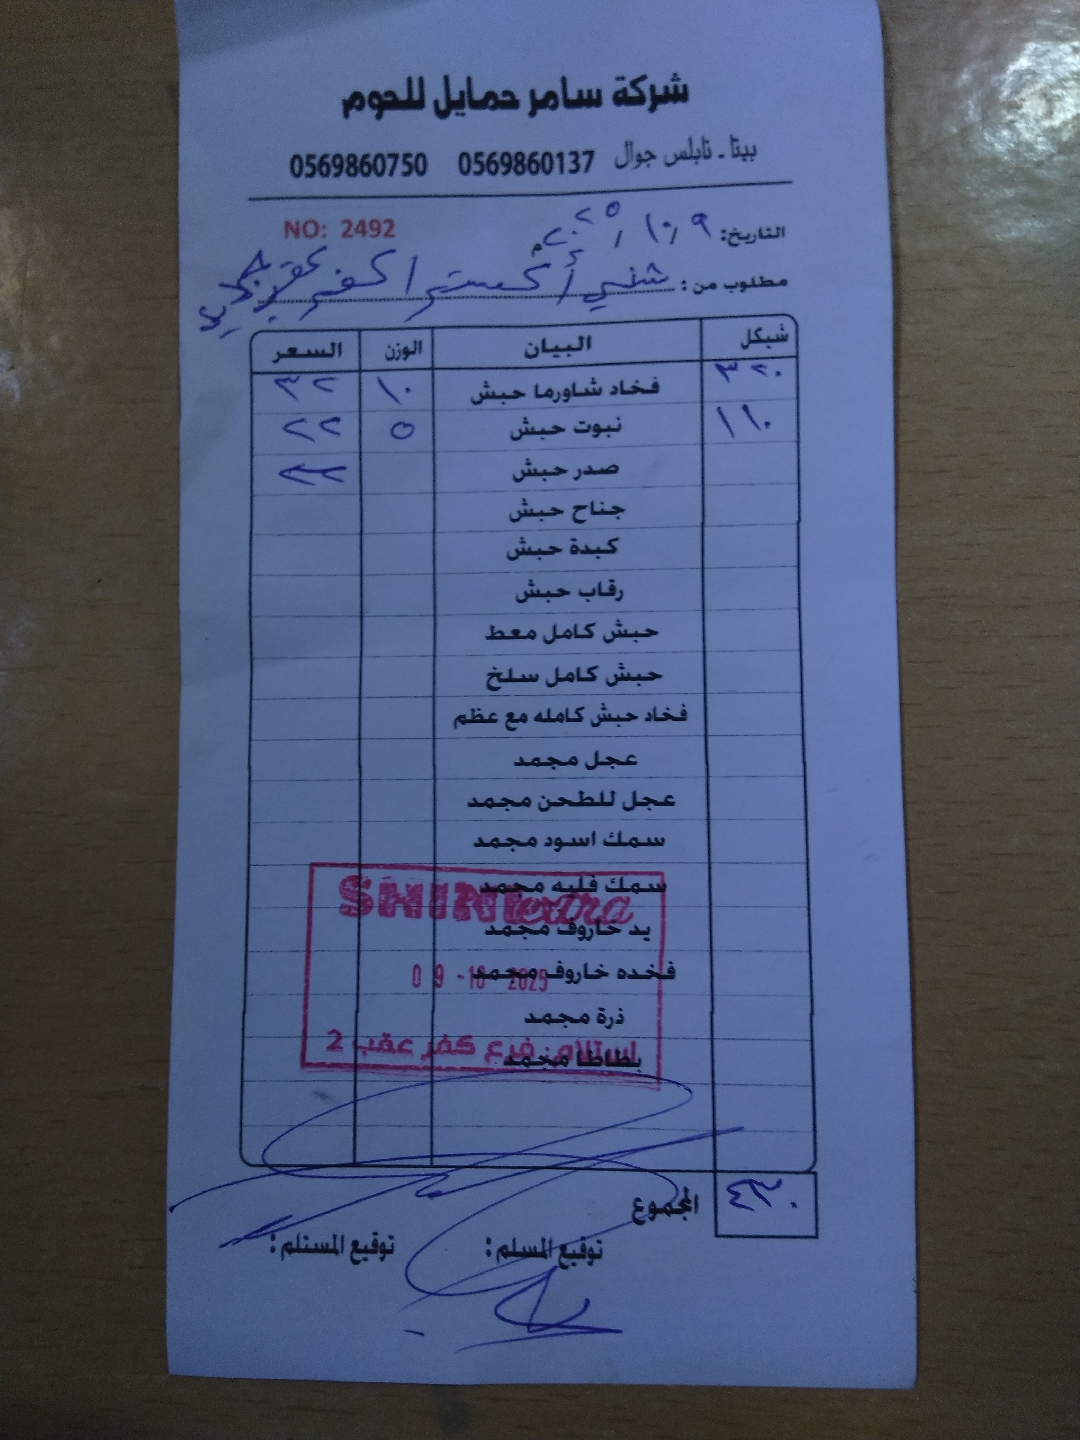 شركة سامر حمايل للحوم
بيتا - نابلس جوال 0569860137 0569860750
NO: 2492
التاريخ: ٩ / ١٠ / ٢٠٢٥ م
مطلوب من : شني أكسترا كفر عقب
شيكل البيان الوزن السعر
٣٢٠ فخاد شاورما حبش ١٠ ٣٢
١١٠ نبوت حبش ٥ ٢٢
صدر حبش
جناح حبش
كبدة حبش
رقاب حبش
حبش كامل معط
حبش كامل سلخ
فخاد حبش كامله مع عظم
عجل مجمد
عجل للطحن مجمد
سمك اسود مجمد
سمك فليه مجمد
يد خاروف مجمد
فخده خاروف مجمد
ذرة مجمد
بطاطا مجمد
SHINI extra
09 -10- 2025
استلام فرع كفر عقب 2
المجموع ٤٣٠
توقيع المسلم : توقيع المستلم :